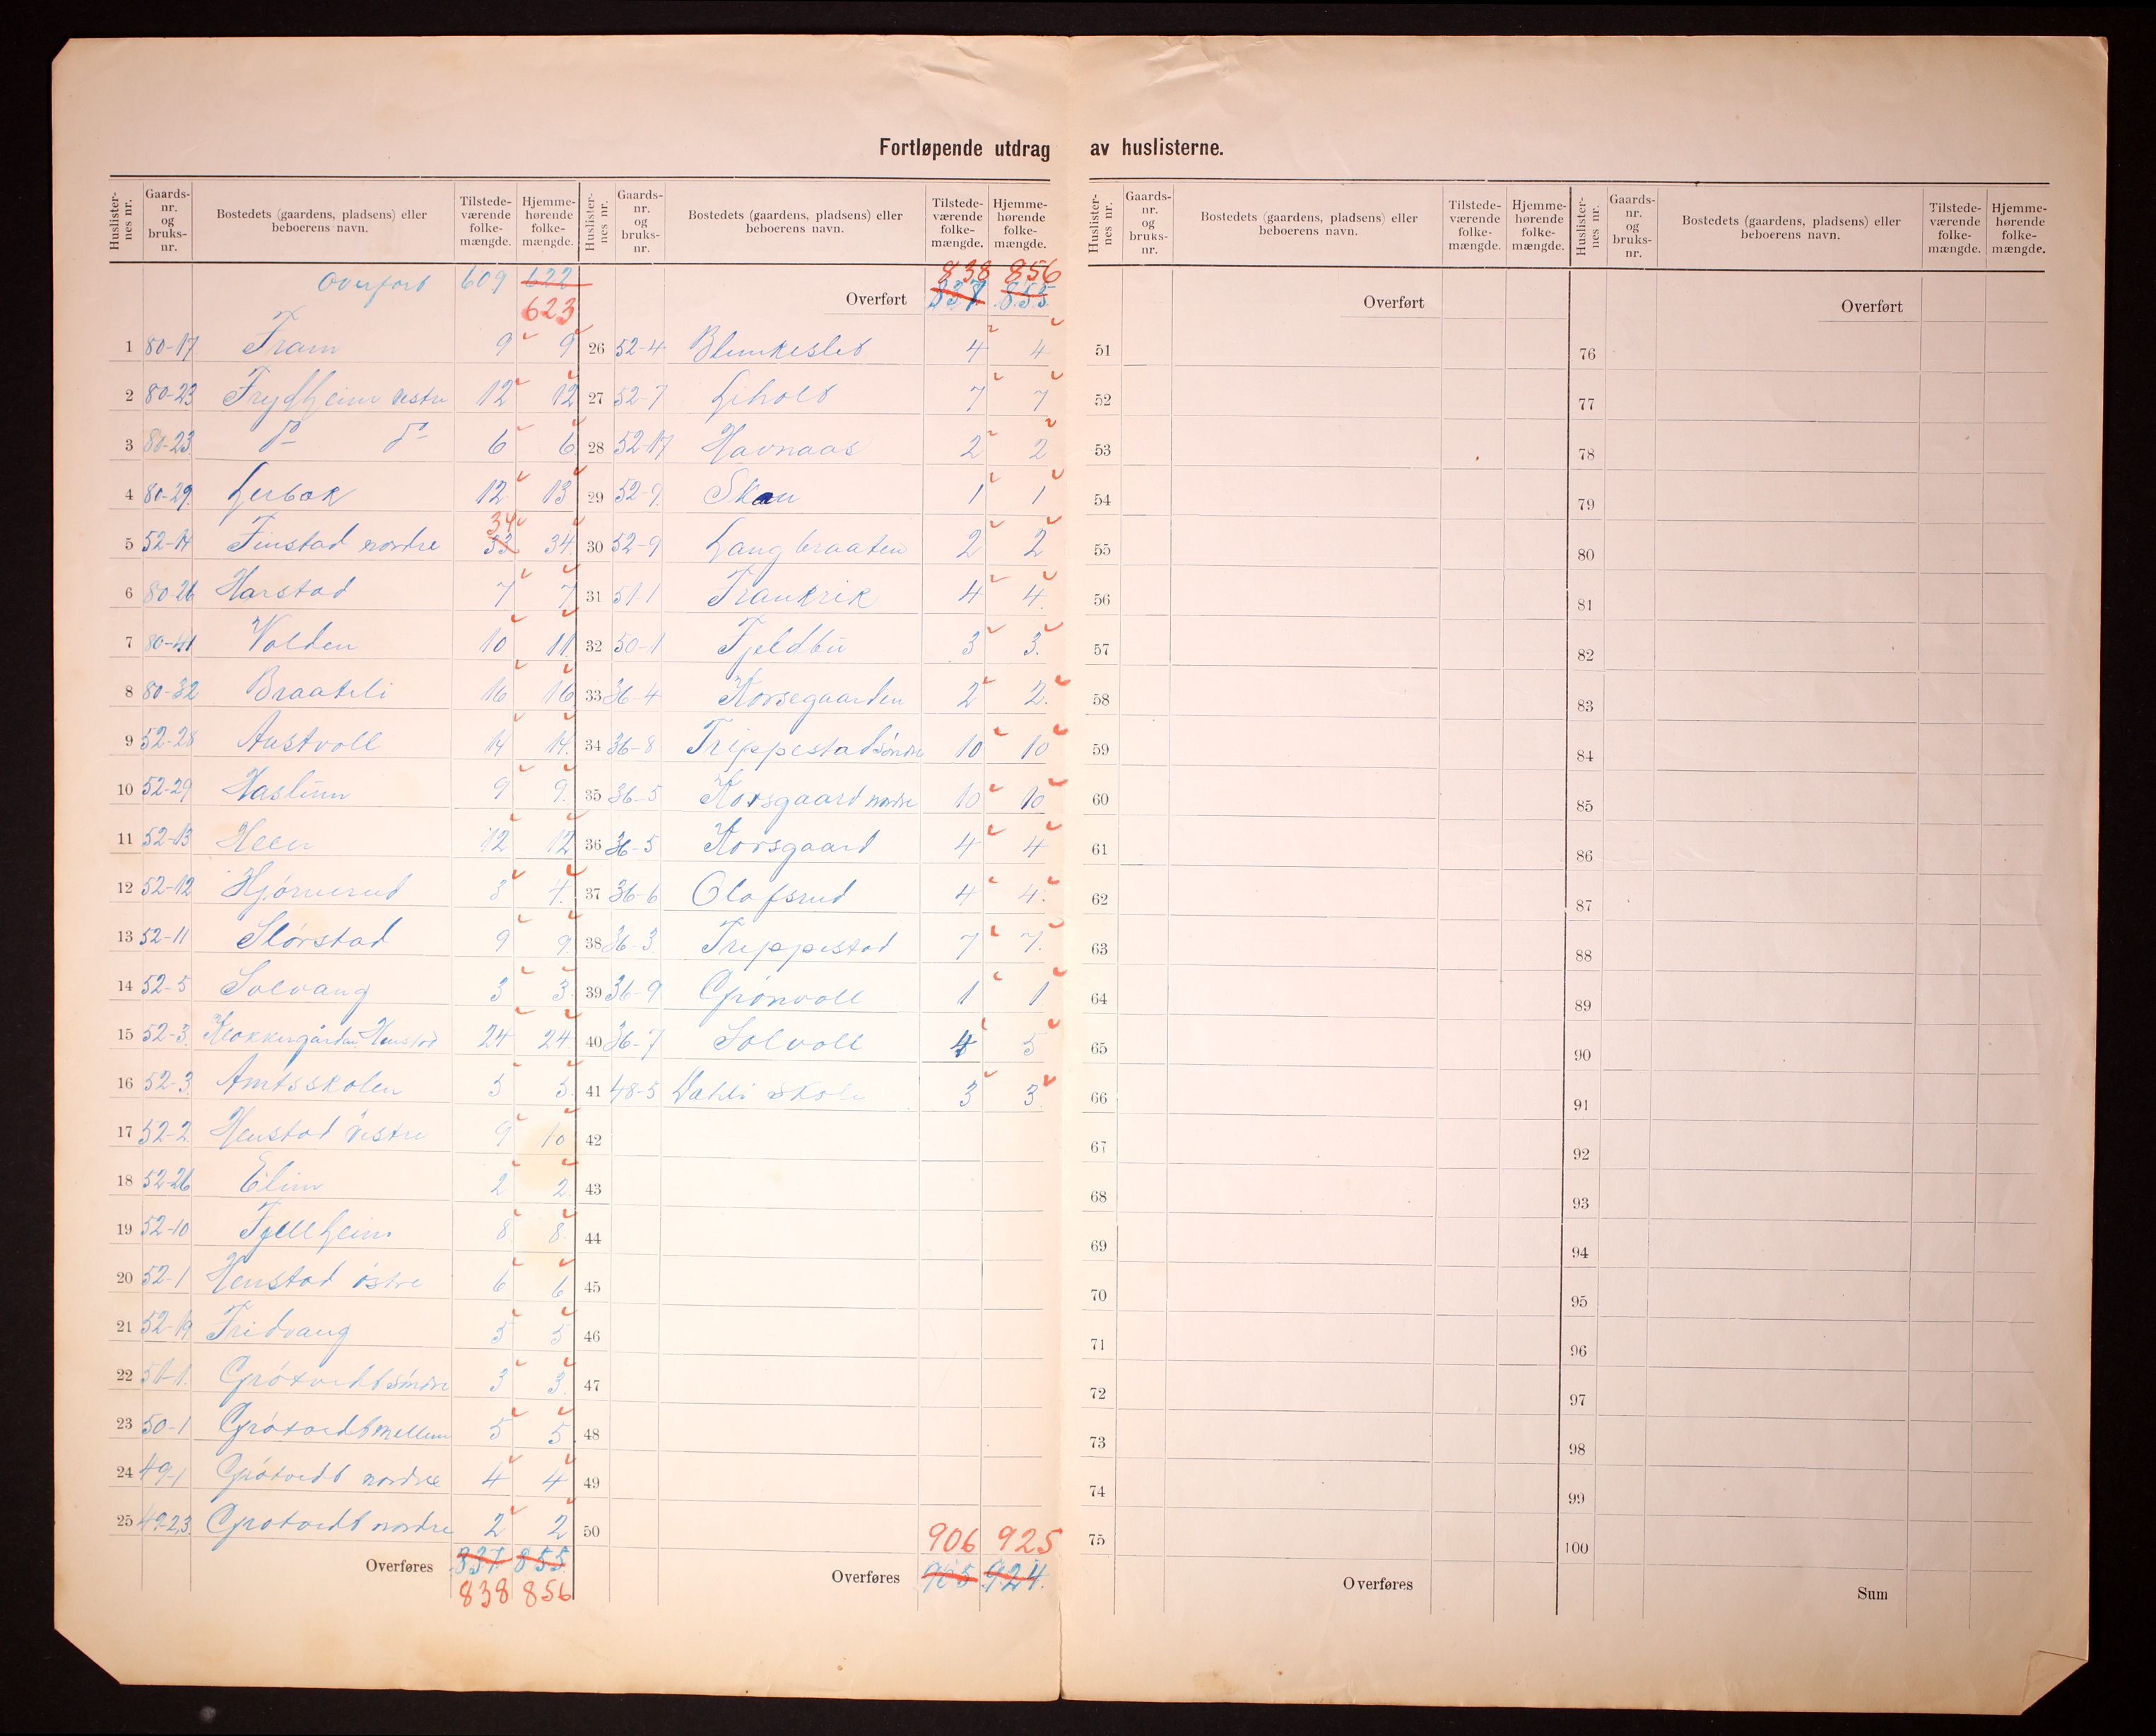 Fortløpende utdrag av huslisterne.
Huslister-nes nr. Gaards-nr. og bruks-nr. Bostedets (gaardens, pladsens) eller beboerens navn. Tilstede-værende folke-mængde. Hjemme-hørende folke-mængde.
Overført 609 622
623
1 80-17 Fram 9 9
2 80-23 Frydheim vestre 12 12
3 80-23 do do 6 6
4 80-29 Lerbak 12 13
34
5 52-14 Finstad nordre 33 34
6 80-26 Harstad 7 7
7 80-41 Volden 10 11
8 80-32 Braateli 16 16
9 52-28 Austvoll 14 14
10 52-29 Haslum 9 9
11 52-13 Heer 12 12
12 52-12 3 4
13 52-11 Slørstad 9 9
14 52-5 Solvang 3 3
15 52-3 Klokkergården Henstad 24 24
16 52-3 Amtsskolen 5 5
17 52-2 Henstad vestre 9 10
18 52-26 Elim 2 2
19 52-10 Fjellheim 8 8
20 52-1 Henstad østre 6 6
21 52-19 Fridvang 5 5
22 51-1 Grøtvedt søndre 3 3
23 50-1 Grøtvedt mellem 5 5
24 49-1 Grøtvedt nordre 4 4
25 49-2,3 Grøtvedt nordre 2 2
Overføres 837 855
838 856
Huslister-nes nr. Gaards-nr. og bruks-nr. Bostedets (gaardens, pladsens) eller beboerens navn. Tilstede-værende folke-mængde. Hjemme-hørende folke-mængde.
838 856
Overført 837 855
26 52-4 4 4
27 52-7 Lihold 7 7
28 52-17 Havnaas 2 2
29 52-9 Skau 1 1
30 52-9 Langbraaten 2 2
31 51-1 Frankrik 4 4
32 50-1 Fjeldbu 3 3
33 36-4 Korsegaarden 2 2
34 36-8 Treppestad søndre 10 10
35 36-5 Korsgaard nordre 10 10
36 36-5 Korsgaard 4 4
37 36-6 Olafsrud 4 4
38 36-3 Treppestad 7 7
39 36-9 Grønvoll 1 1
40 36-7 Solvoll 4 5
41 48-5 Dahli skole 3 3
42
43
44
45
46
47
48
49
50
906 925
Overføres 905 924
Huslister-nes nr. Gaards-nr. og bruks-nr. Bostedets (gaardens, pladsens) eller beboerens navn. Tilstede-værende folke-mængde. Hjemme-hørende folke-mængde.
Overført
51
52
53
54
55
56
57
58
59
60
61
62
63
64
65
66
67
68
69
70
71
72
73
74
75
Overføres
Huslister-nes nr. Gaards-nr. og bruks-nr. Bostedets (gaardens, pladsens) eller beboerens navn. Tilstede-værende folke-mængde. Hjemme-hørende folke-mængde.
Overført
76
77
78
79
80
81
82
83
84
85
86
87
88
89
90
91
92
93
94
95
96
97
98
99
100
Sum